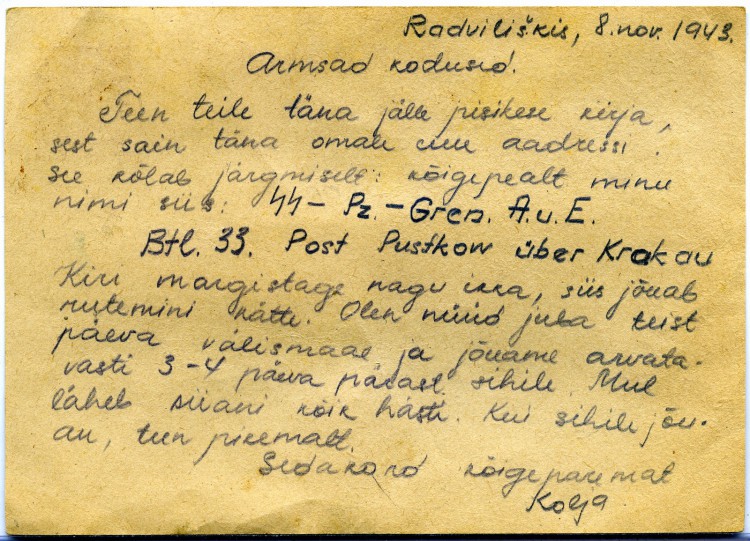 Radviliškis, 8. nov. 1943.
Armsad kodused.
Teen teile täna jälle pisikese kirja,
sest sain täna omale uue aadressi.
See kõlab järgmiselt: kõigepealt minu
nimi siis: SS- Pz.-Gren. A.u.E.
Btl. 33. Post Pustkow über Krakau
Kiri margistage nagu ikka, siis jõuab
rutemini kätte. Olen nüüd juba teist
päeva välismaal ja jõuame arvata-
vasti 3-4 päeva pärast sihile. Mul
läheb siiani kõik hästi. Kui sihile jõu-
an, teen pikemalt.
Sedakord kõigeparemat
Kolja